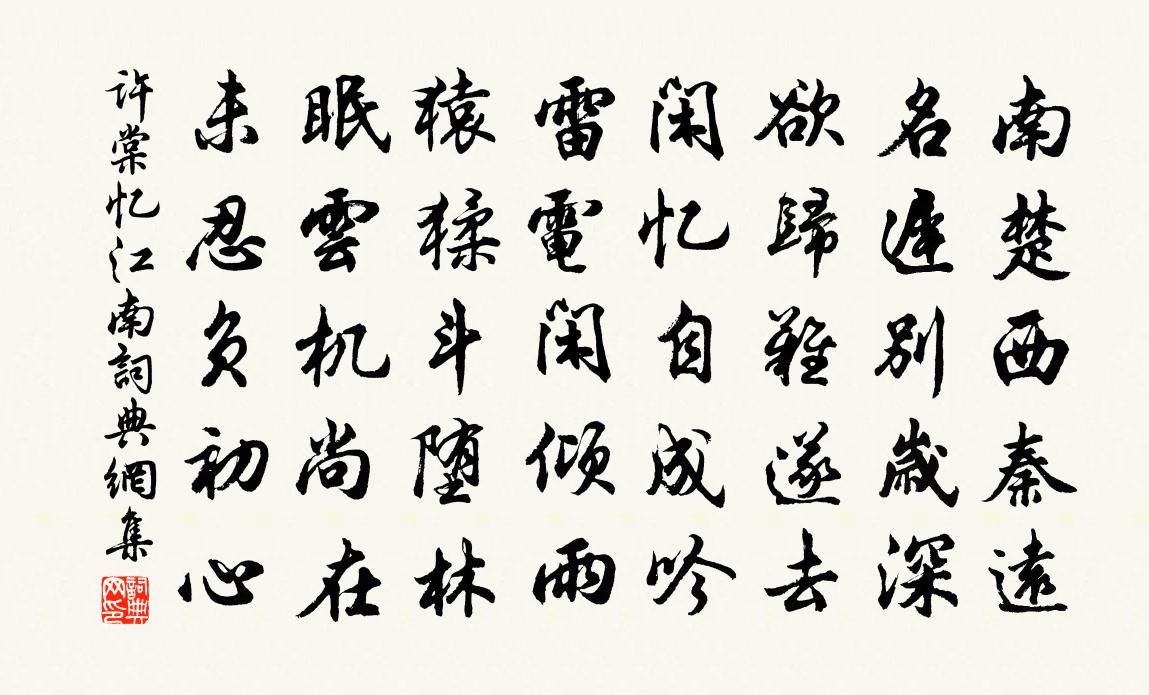 南楚西秦遠
名遲別歲深
欲歸難遂去
閑忆自成吟
雷電閑傾雨
猿猱斗堕林
眠雲机尚在
未忍负初心
许棠忆江南詞典網集
詞典网印